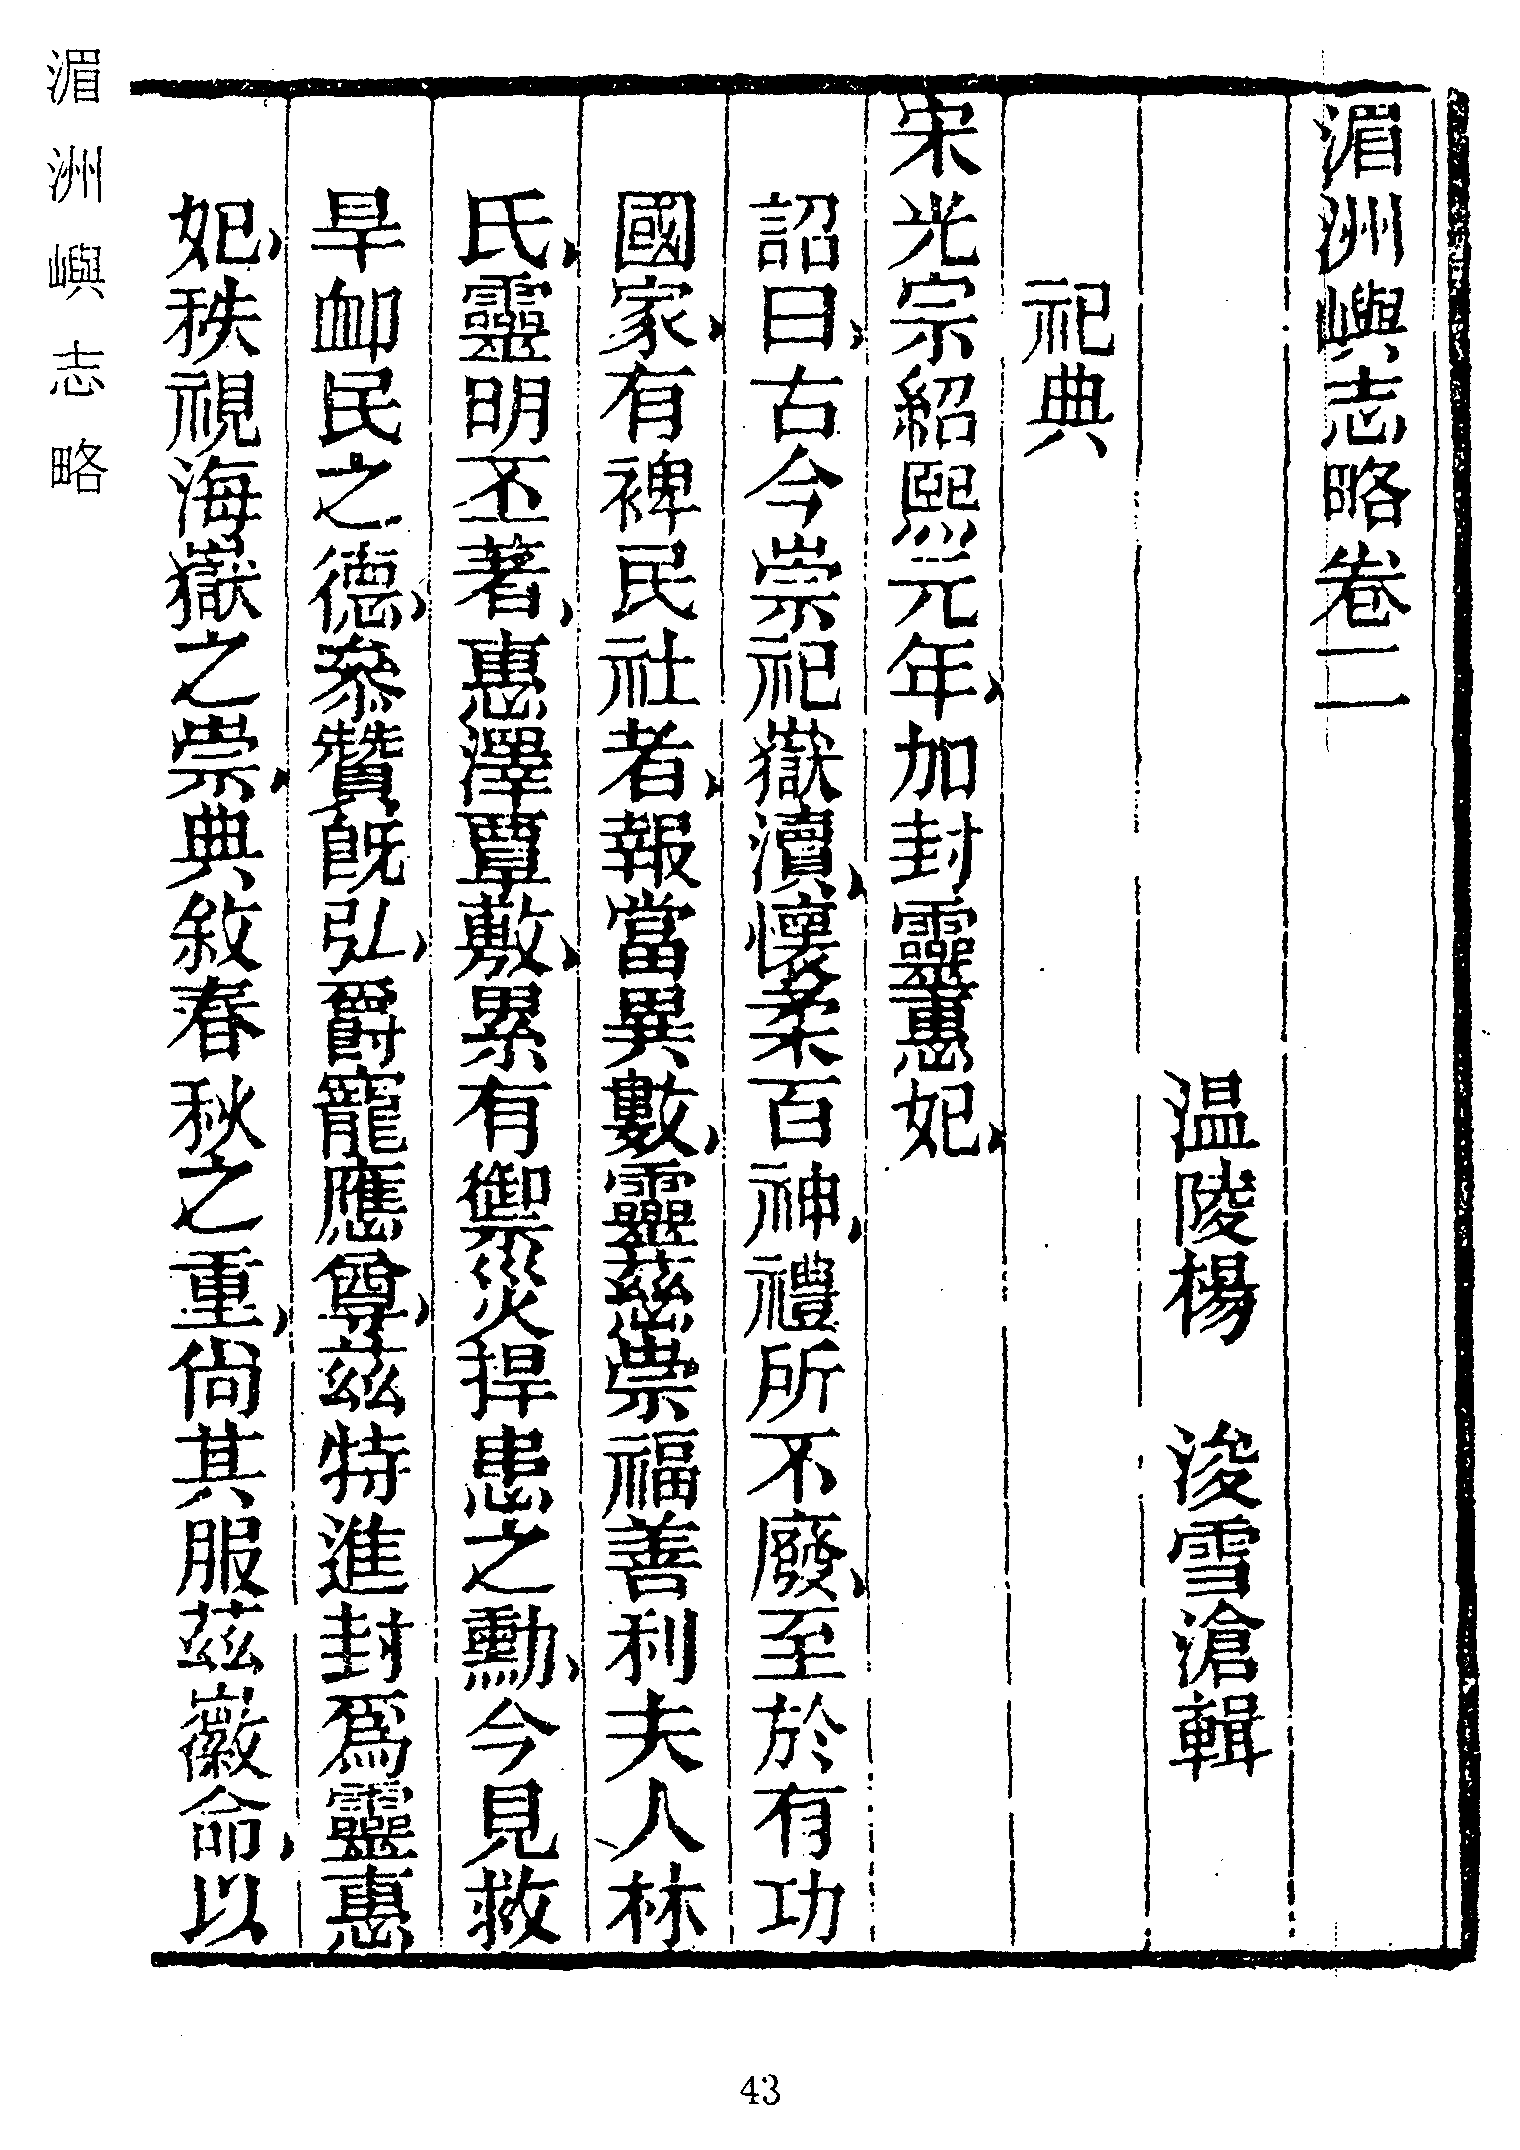 湄洲嶼志略卷二
溫陵楊　浚雪滄輯
祀典
宋光宗紹熙元年、加封靈惠妃、
詔曰、古今崇祀嶽瀆、懷柔百神、禮所不廢、至於有功
國家、有裨民社者、報當異數、靈慈崇福善利夫人林
氏、靈明丕著、惠澤覃敷、累有禦災捍患之勳、今見救
旱卹民之德、參贊旣弘、爵寵應尊、茲特進封爲靈惠
妃、秩視海嶽之崇、典敘春秋之重、尙其服茲徽命、以
湄洲嶼志略
43